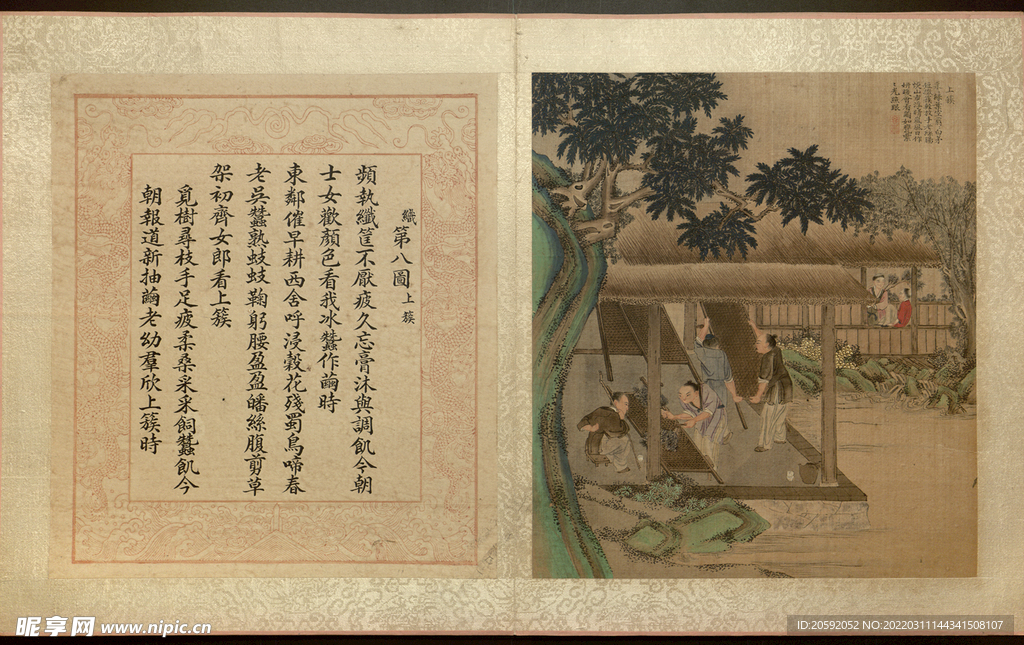 織第八圖上簇
頻執纖筐不厭疲久忘膏沐與調飢今朝
士女歡顏色看我冰蠶作繭時
東鄰催早耕西舍呼浸穀花殘蜀鳥啼春
老吳蠶熟蚑蚑鞠躬腰盈盈皤絲腹剪草
架初齊女郎看上簇
覓樹尋枝手足疲柔桑采采飼蠶飢今
朝報道新抽繭老幼羣欣上簇時
上簇
昵享网 www.nipic.cn
ID:20592052 NO:20220311144341508107